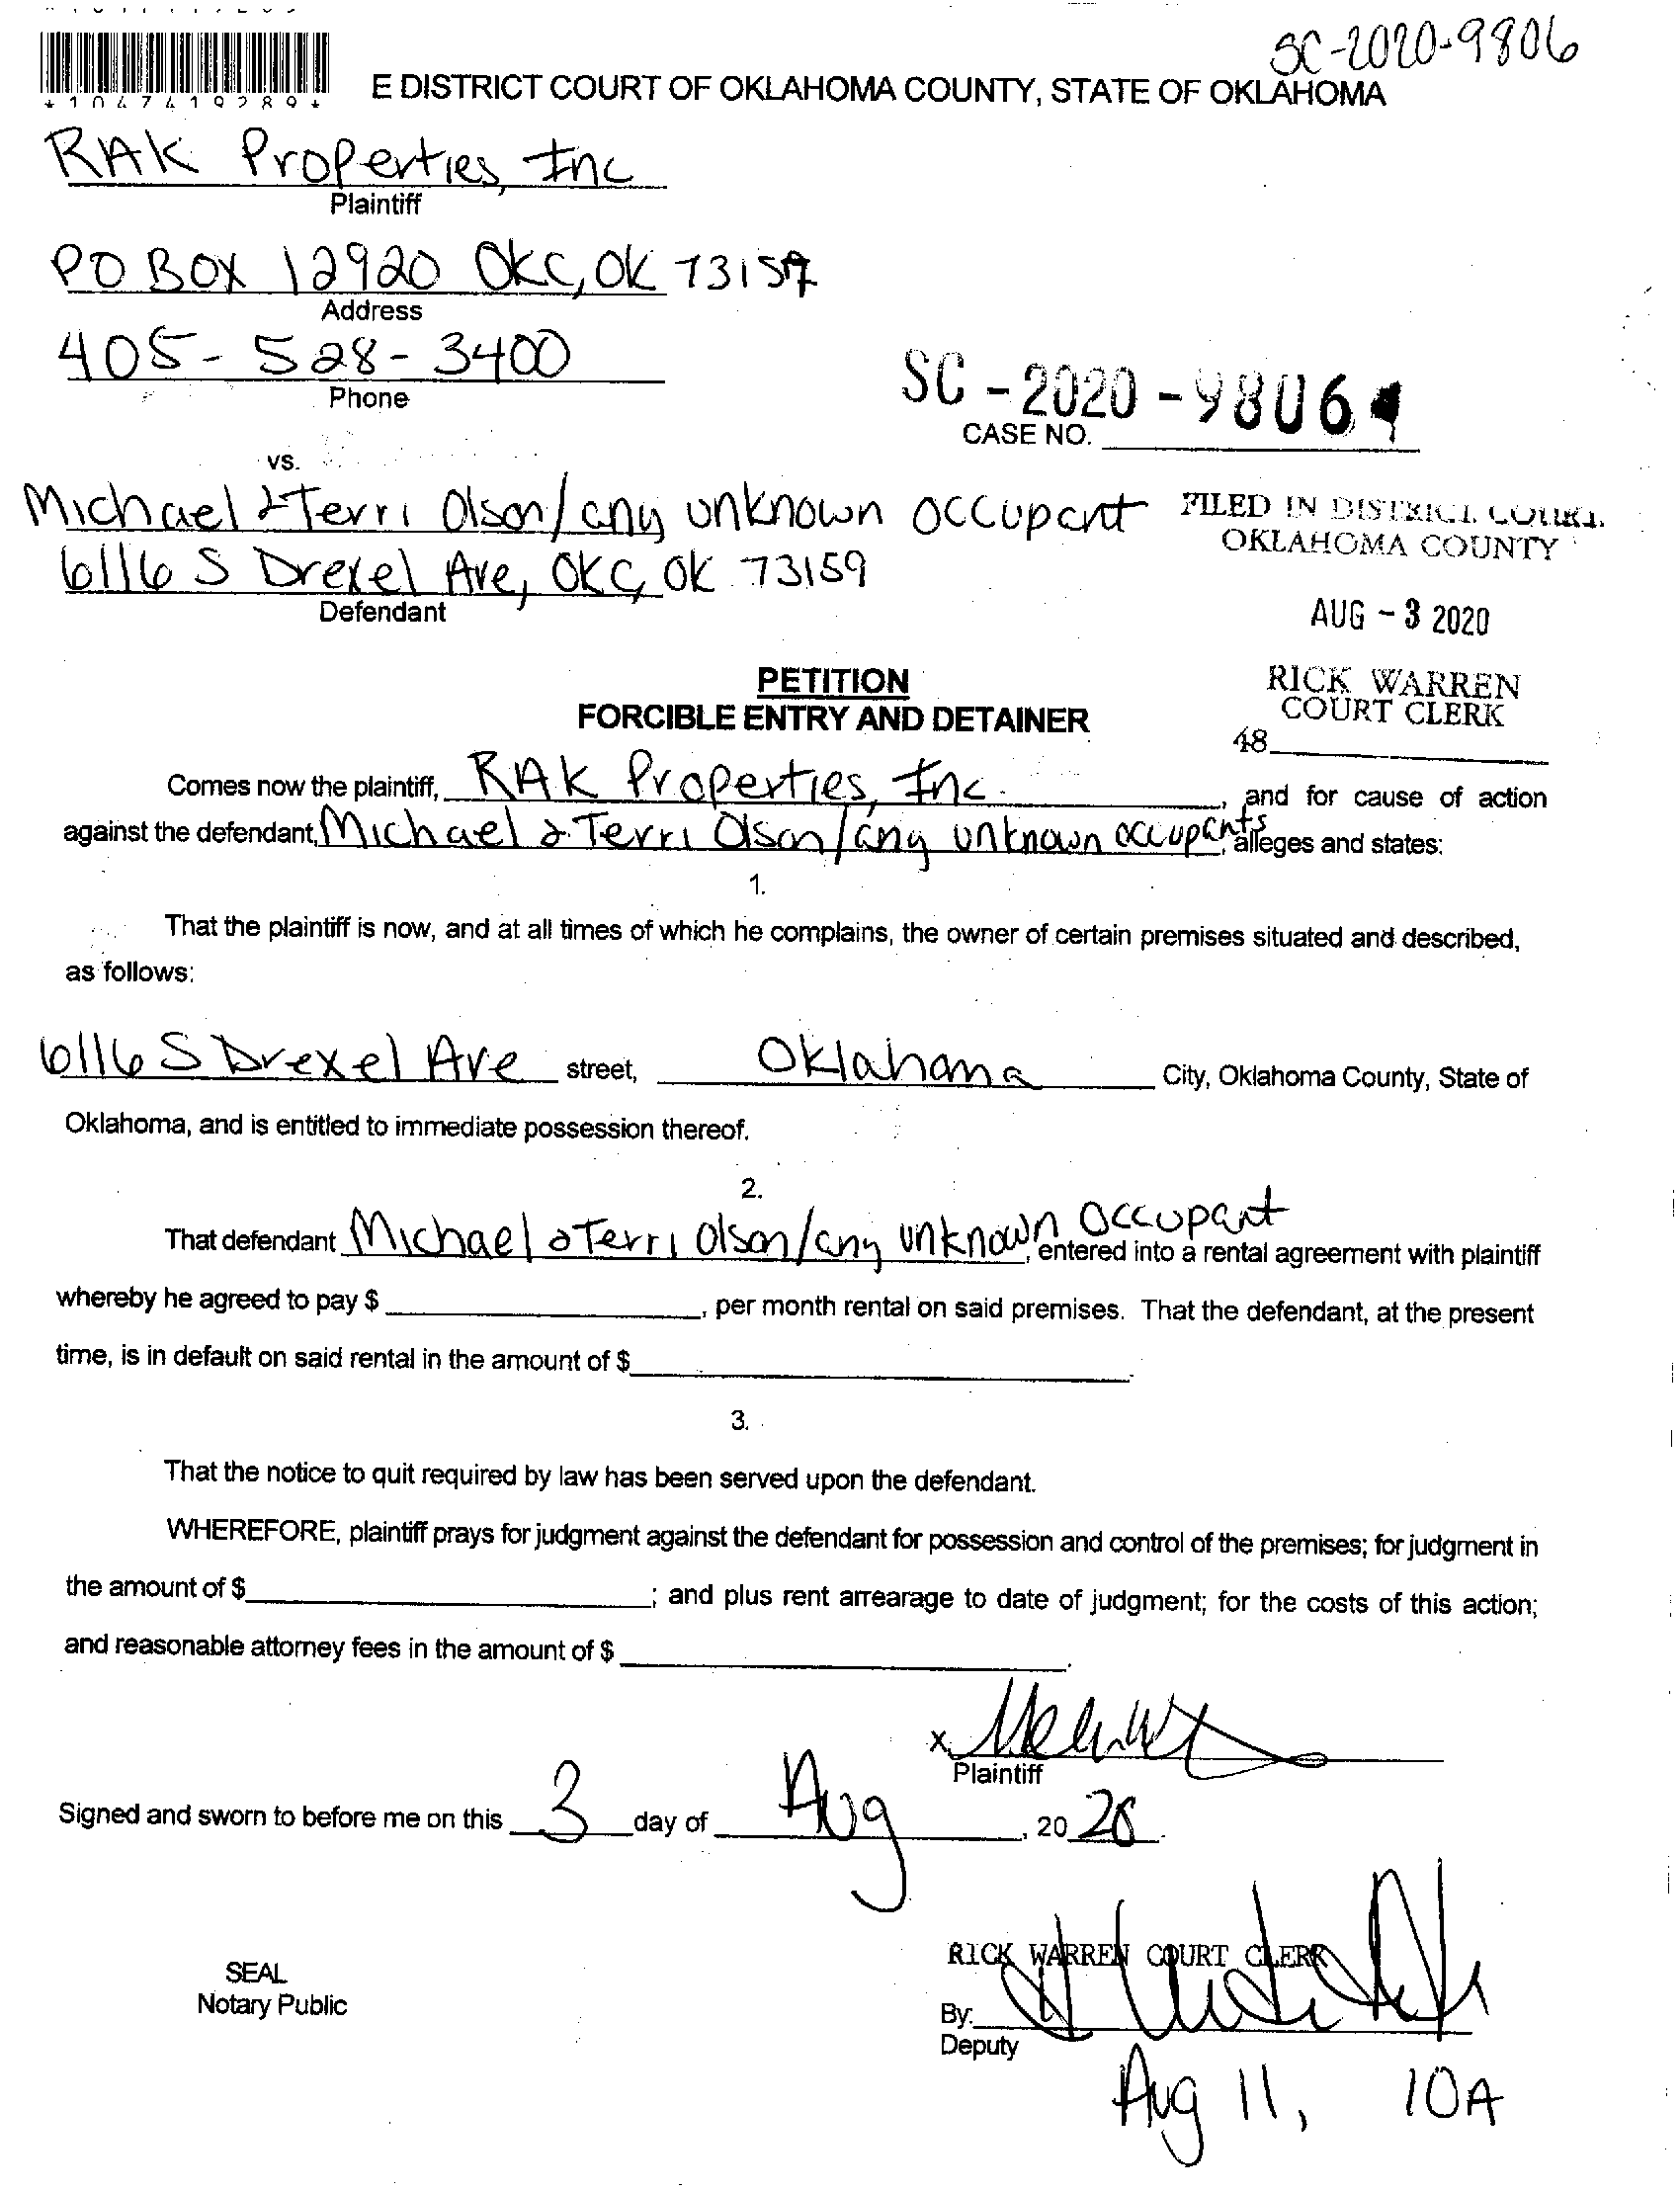 SC-2020-9806
*1047419289*
E DISTRICT COURT OF OKLAHOMA COUNTY, STATE OF OKLAHOMA
RAK Properties, Inc
Plaintiff
PO BOX 12920 OKC, OK 73157
Address
405-528-3400
Phone
SC-2020-9806
CASE NO.
vs.
Michael & Terri Olson/any unknown occupant
FILED IN DISTRICT COURT
OKLAHOMA COUNTY
6116 S Drexel Ave, OKC, OK 73159
Defendant
AUG - 3 2020
PETITION
FORCIBLE ENTRY AND DETAINER
RICK WARREN
COURT CLERK
48
Comes now the plaintiff, RAK Properties, Inc. , and for cause of action
against the defendant, Michael & Terri Olson/any unknown occupants, alleges and states:
1.
That the plaintiff is now, and at all times of which he complains, the owner of certain premises situated and described,
as follows:
6116 S Drexel Ave street, Oklahoma City, Oklahoma County, State of
Oklahoma, and is entitled to immediate possession thereof.
2.
That defendant Michael & Terri Olson/any unknown occupant, entered into a rental agreement with plaintiff
whereby he agreed to pay $ , per month rental on said premises. That the defendant, at the present
time, is in default on said rental in the amount of $ .
3.
That the notice to quit required by law has been served upon the defendant.
WHEREFORE, plaintiff prays for judgment against the defendant for possession and control of the premises; for judgment in
the amount of $ ; and plus rent arrearage to date of judgment; for the costs of this action;
and reasonable attorney fees in the amount of $ .
X
Plaintiff
Signed and sworn to before me on this 3 day of Aug , 20 20.
RICK WARREN COURT CLERK
SEAL
Notary Public
By:
Deputy
Aug 11, 10A